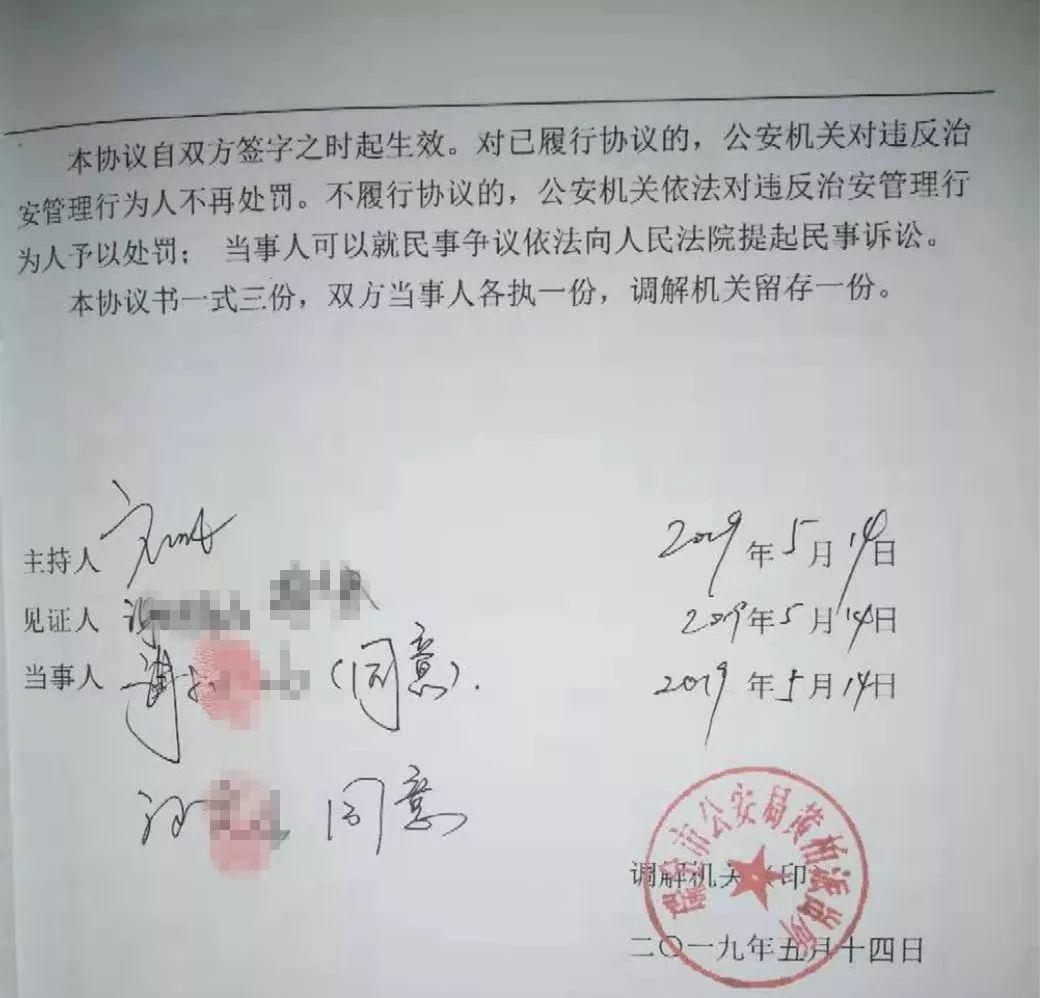 本协议自双方签字之时起生效。对已履行协议的，公安机关对违反治
安管理行为人不再处罚。不履行协议的，公安机关依法对违反治安管理行
为人予以处罚； 当事人可以就民事争议依法向人民法院提起民事诉讼。
本协议书一式三份，双方当事人各执一份，调解机关留存一份。
主持人 2019年5月14日
见证人 2019年5月14日
当事人 （同意）. 2019年5月14日
同意
市公安局黄柏派出所
调解机关 印
二〇一九年五月十四日